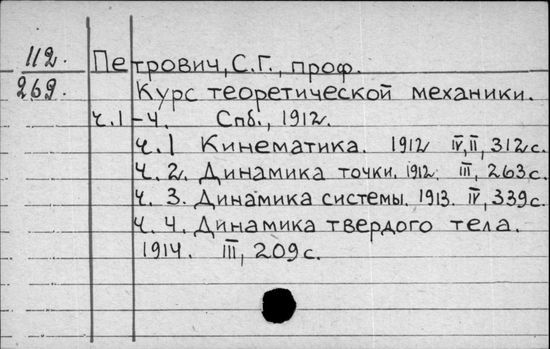 112.
269.
Петрович, С.Г., проф.
Курс теоретической механики.
ч.1-4. Спб., 1912.
ч.1 Кинематика. 1912 IV, II, 312с.
ч. 2. Динамика точки. 1912. III, 263с.
ч. 3. Динамика системы. 1913. IV, 339с.
ч. 4. Динамика твердого тела.
1914. III, 209с.